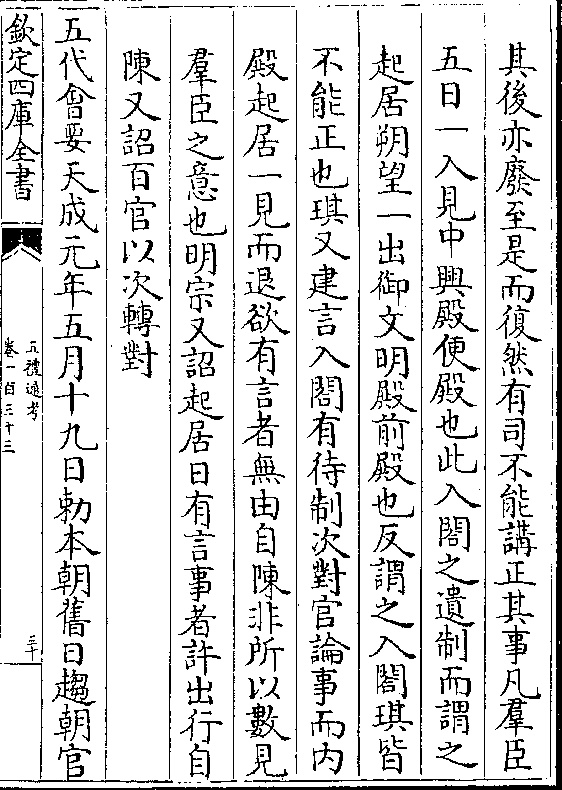 其後亦廢至是而復然有司不能講正其事凡羣臣
五日一入見中興殿便殿也此入閤之遺制而謂之
起居朔望一出御文明殿前殿也反謂之入閤琪皆
不能正也琪又建言入閤有待制次對官論事而内
殿起居一見而退欲有言者無由自陳非所以數見
羣臣之意也明宗又詔起居日有言事者許出行自
陳又詔百官以次轉對
五代會要天成元年五月十九日勅本朝舊日趨朝官
欽定四庫全書
五禮通考
卷一百三十二
三十